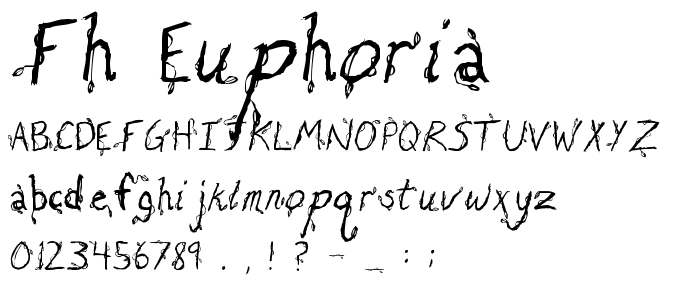 Fh Euphoria
ABCDEFGHIJKLMNOPQRSTUVWXYZ
abcdefghijklmnopqrstuvwxyz
0123456789 . , ! ? - _ : ;